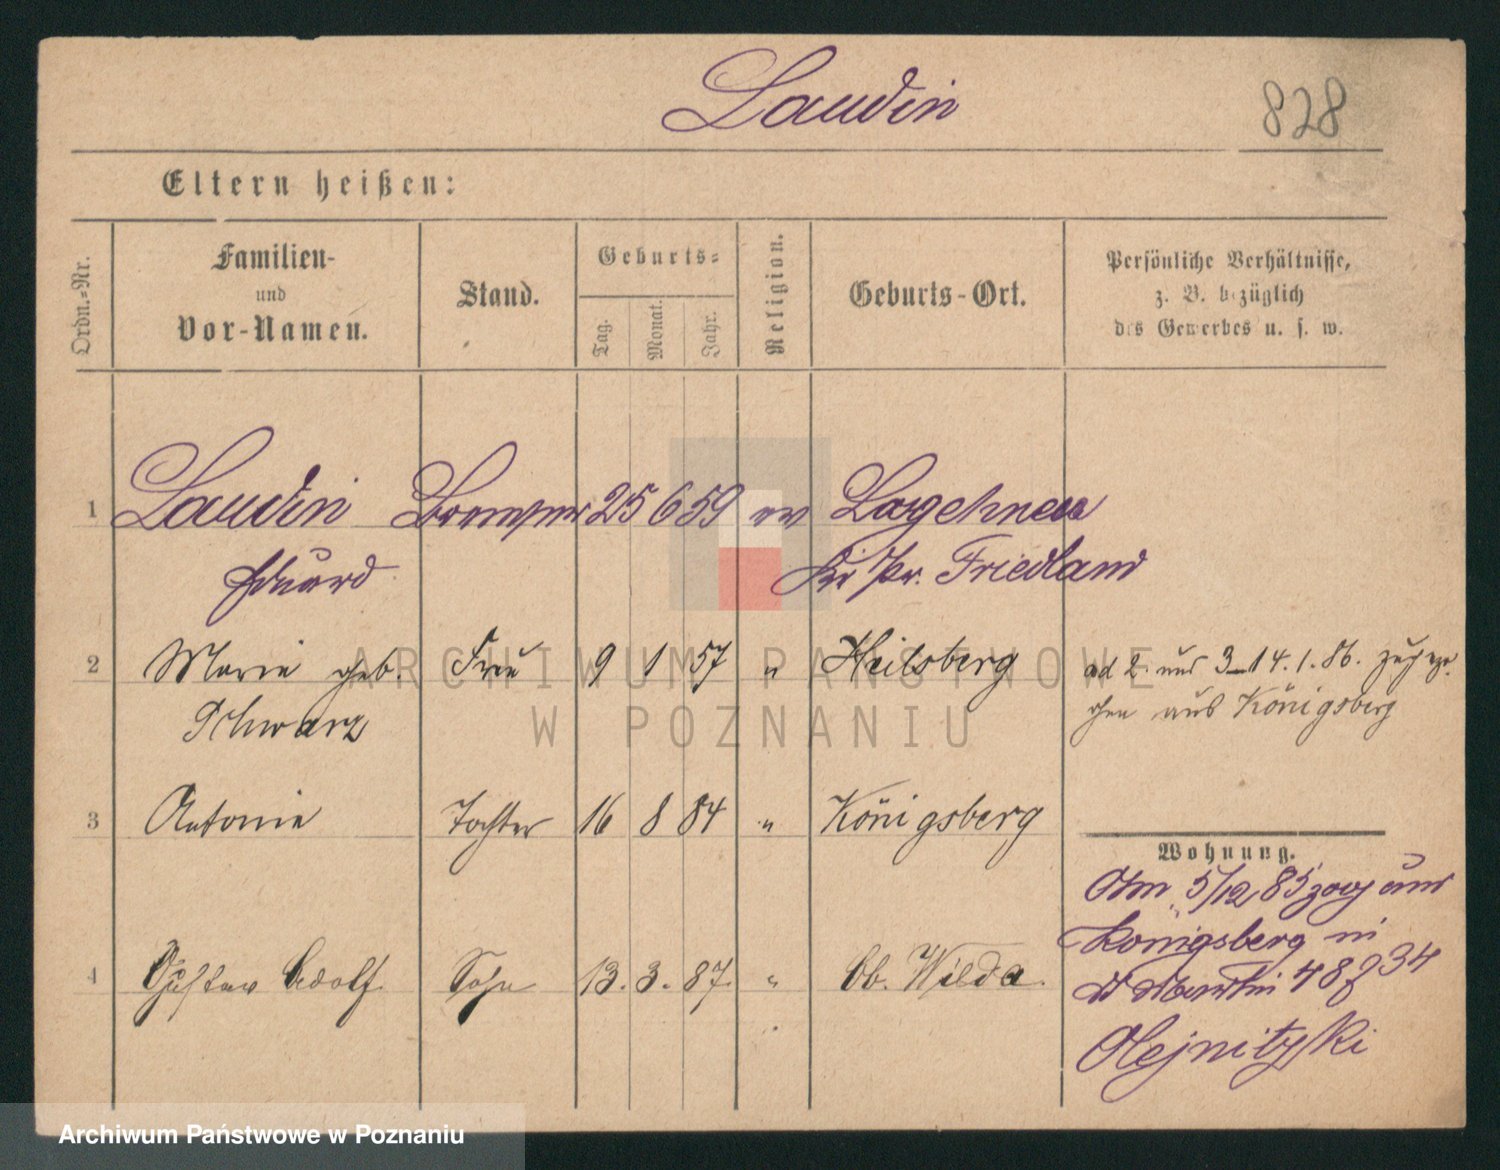 Laudin
828
Eltern heißen:
Ordn.-Nr.
Familien-
und
Vor-Namen.
Stand.
Geburts-
Tag.
Monat.
Jahr.
Religion.
Geburts-Ort.
Persönliche Verhältnisse,
z. B. bezüglich
des Gewerbes u. s. w.
1 Laudin 25 6 59 ev
Eduard Kr Pr. Friedland
2 Marie geb. Frau 9 1 57 " Heilsberg
Schwarz
ad 2. und 3 14.1.86. zugezo-
gen aus Königsberg
3 Antonie Tochter 16 8 84 " Königsberg
4 Gustav Adolf Sohn 13. 3. 87. " Ob. Wilda.
Wohnung.
Am 5/12 85 zog
Königsberg in
St Martin 48 34
Olejnitzki
ARCHIWUM PAŃSTWOWE
W POZNANIU
Archiwum Państwowe w Poznaniu